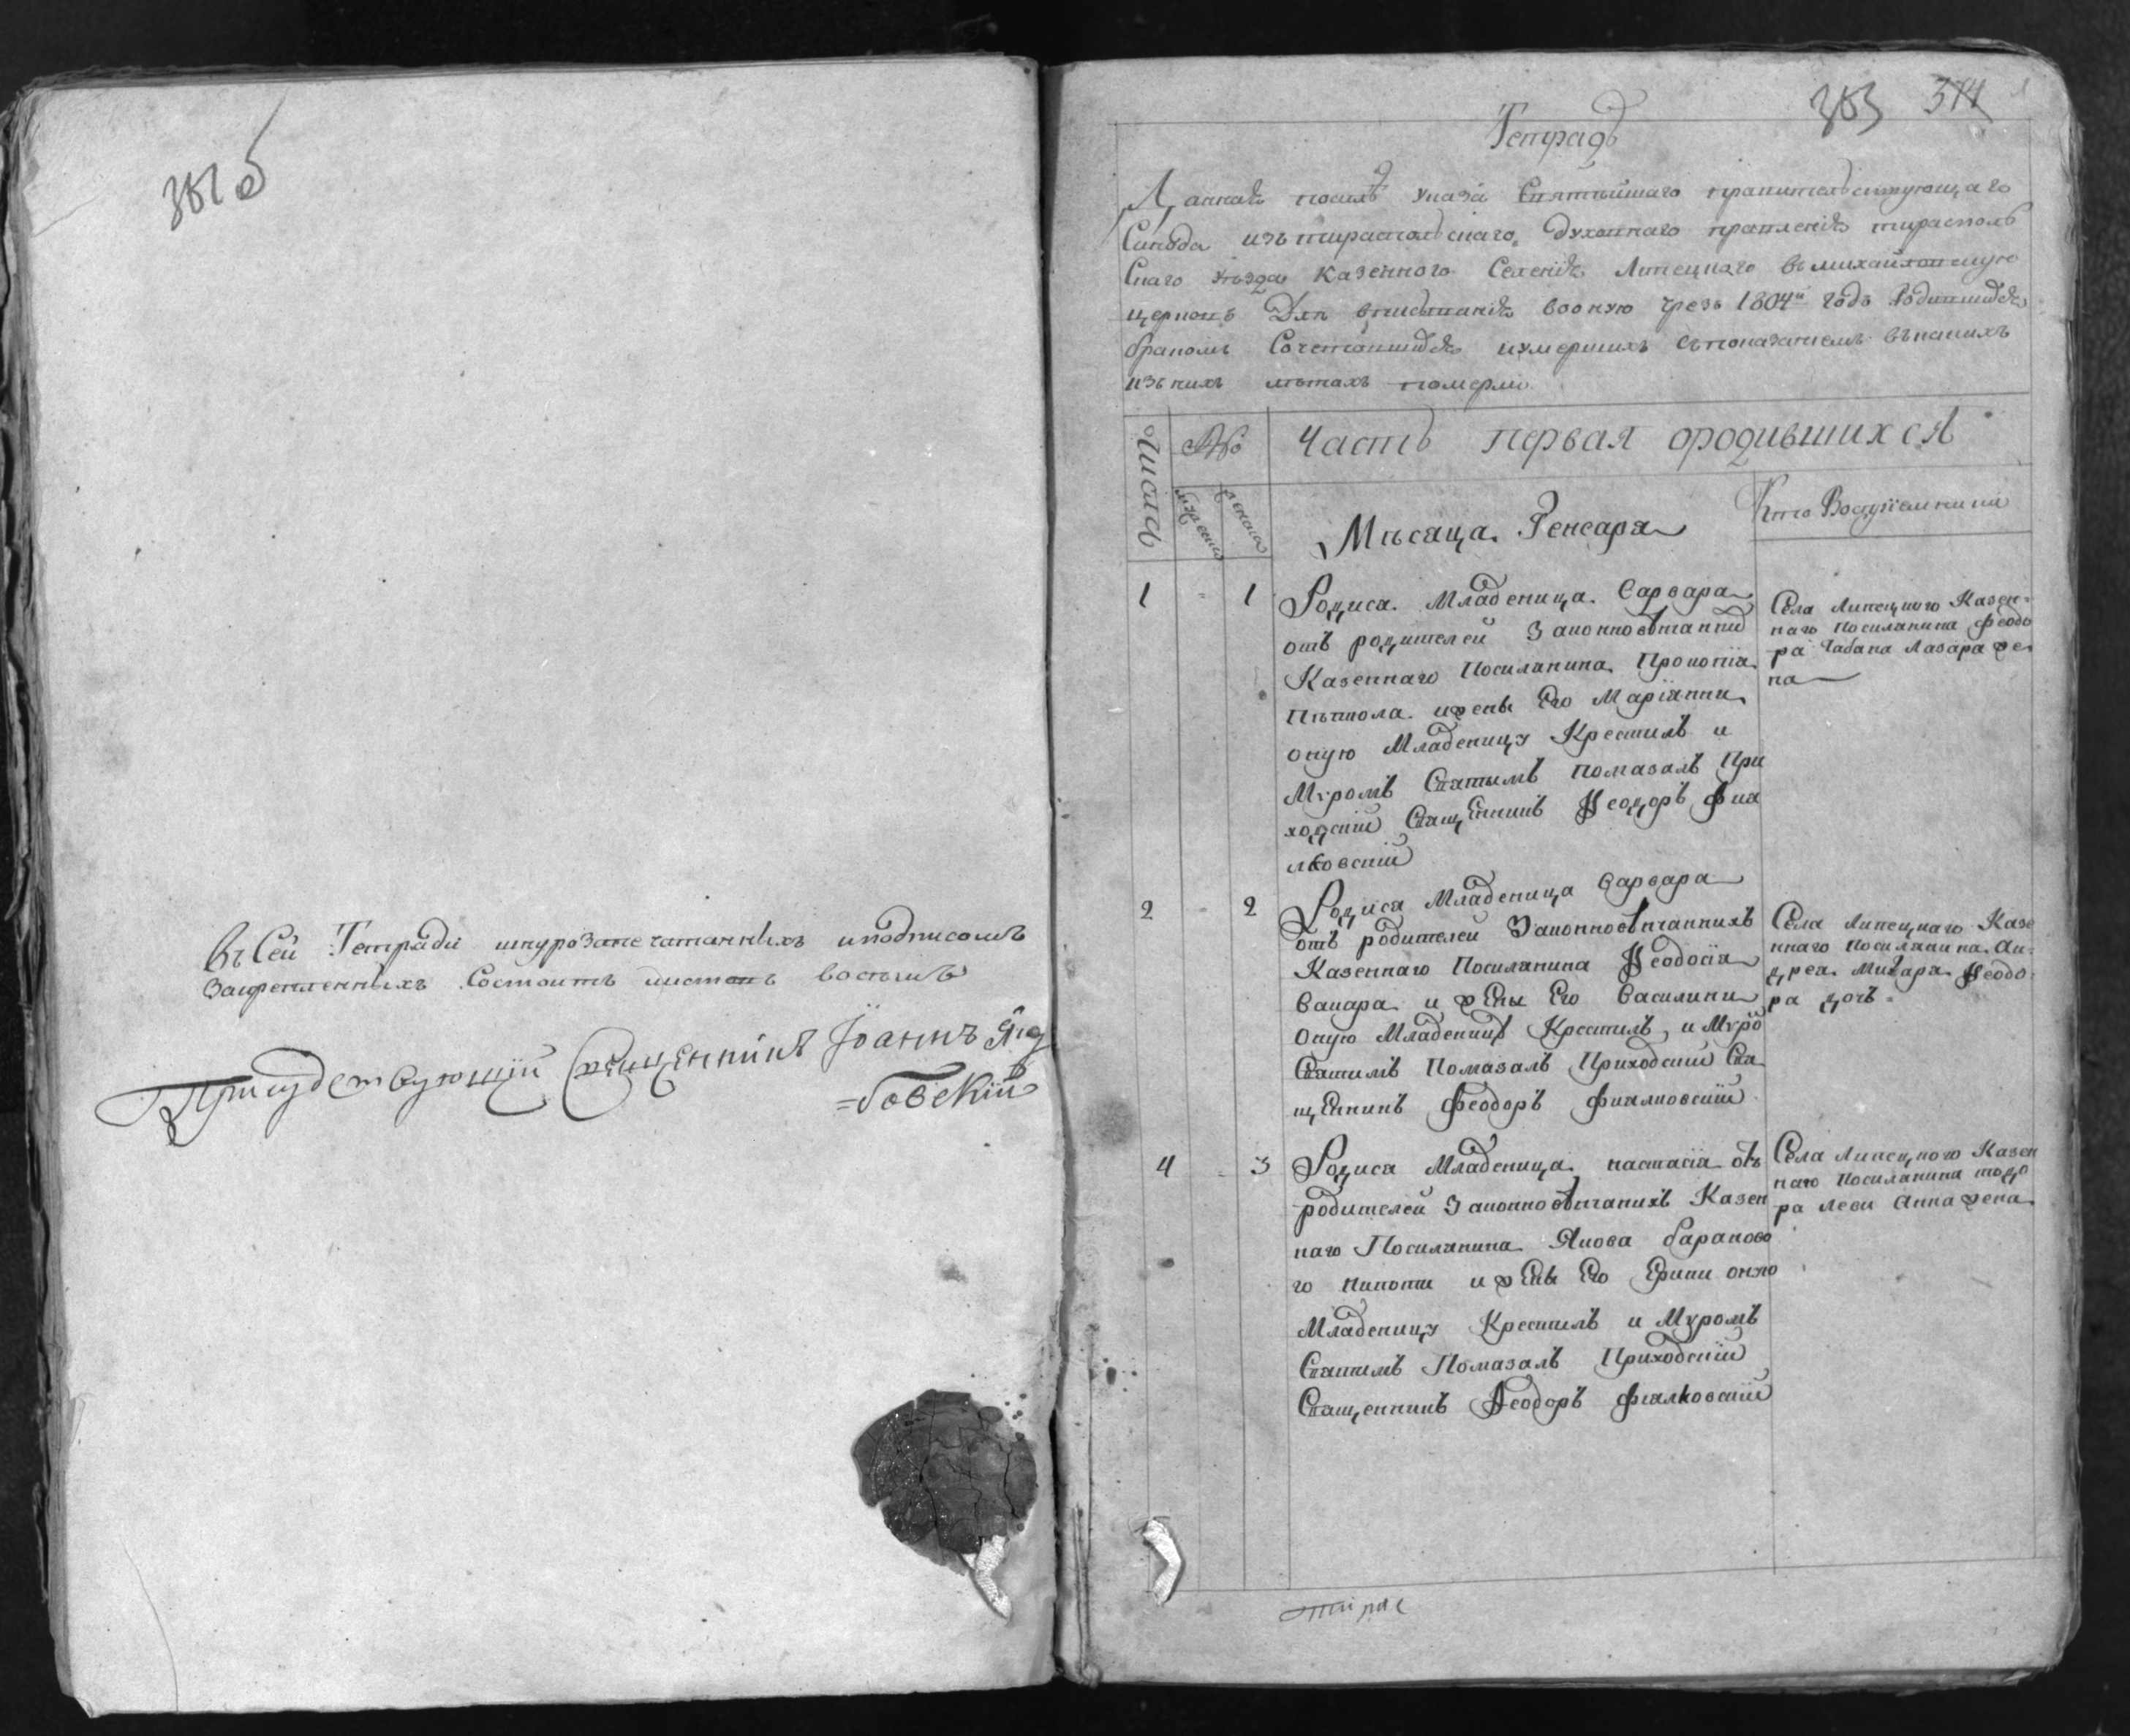 382 об
Въ Сей Тетради шнурозапечатанныхъ и подписомъ
Закрепленныхъ Состоитъ листовъ восемь
Присудствующій Священникъ Іоаннъ
=бовскій
383 374
Тетрадь
Данная посилѣ Указа Святѣйшаго правительствующаго
Синода изъ тираспольскаго духовнаго правленія тирасполь
Скаго уѣзда Казенного Селенія Липецкаго въ михайловскую
церковь Для вписыванія вооную чрезъ 1804й годъ Родившихся
бракомъ Сочетавшихся иумершихъ съ показаніемъ въ какихъ
изъ нихъ лѣтахъ померли
Числа
№
Часть первая ородившихся
мужеска
женска
Мѣсяца Генваря
Кто Воспріемники
1 - 1 Родися Младеница Варвара
отъ родителей Законновѣнчанних
Казенного Посилянина Прокопія
ижены Его Маріянни
оную Младеницу Крестилъ и
Муромъ Святымъ помазалъ При
ходскій Священникъ Ѳеодоръ Фия
лковскій
Села Липецкого Казен-
наго посилянина Феодо
ра Чабана Лазара же
на
2 - 2 Родися Младеница Варвара
отъ родителей Законновѣнчаннихъ
Казенного Посилянина Ѳеодосія
Вакара и жены Его Василини
Оную Младеницу Крестилъ, и Муро
Святимъ Помазалъ Приходский Свя
щенникъ Феодоръ Фиялковсшій
Села Липецкаго Казе
ннаго посилянина Ан-
дреа Ѳеодо-
ра дочь =
4 - 3 Родися Младеница настасія отъ
родителей Законновѣнчанихъ Казен
наго Посилянина Якова бараново
го и жены Его Ерини оную
Младеницу Крестилъ и Муромъ
Святимъ Помазалъ Приходскій
Священникъ Ѳеодоръ Фиялковскій
Села Липецкого Казен
наго посилянина тодо
ра Леви Анна жена
тирас